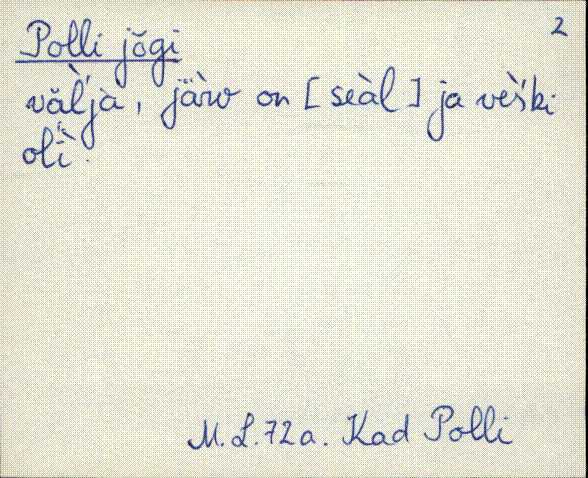 2
Polli jõgi
väl̀'jà, jär̀v on [seàl] ja vès̀'ki
olì.
M. L. 72a. Kad Polli